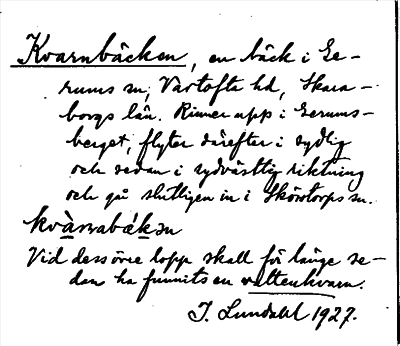 Kvarnbäcken, en bäck i Ge-
rums sn, Vartofta hd, Skara-
borgs län. Rinner upp i Gerums-
berget, flyter därefter i sydlig
och sedan i sydvästlig riktning
och går slutligen in i Skörstorps sn.
Vid dess övre lopp skall för länge se-
dan ha funnits en vattenkvarn.
J. Lundahl 1927.